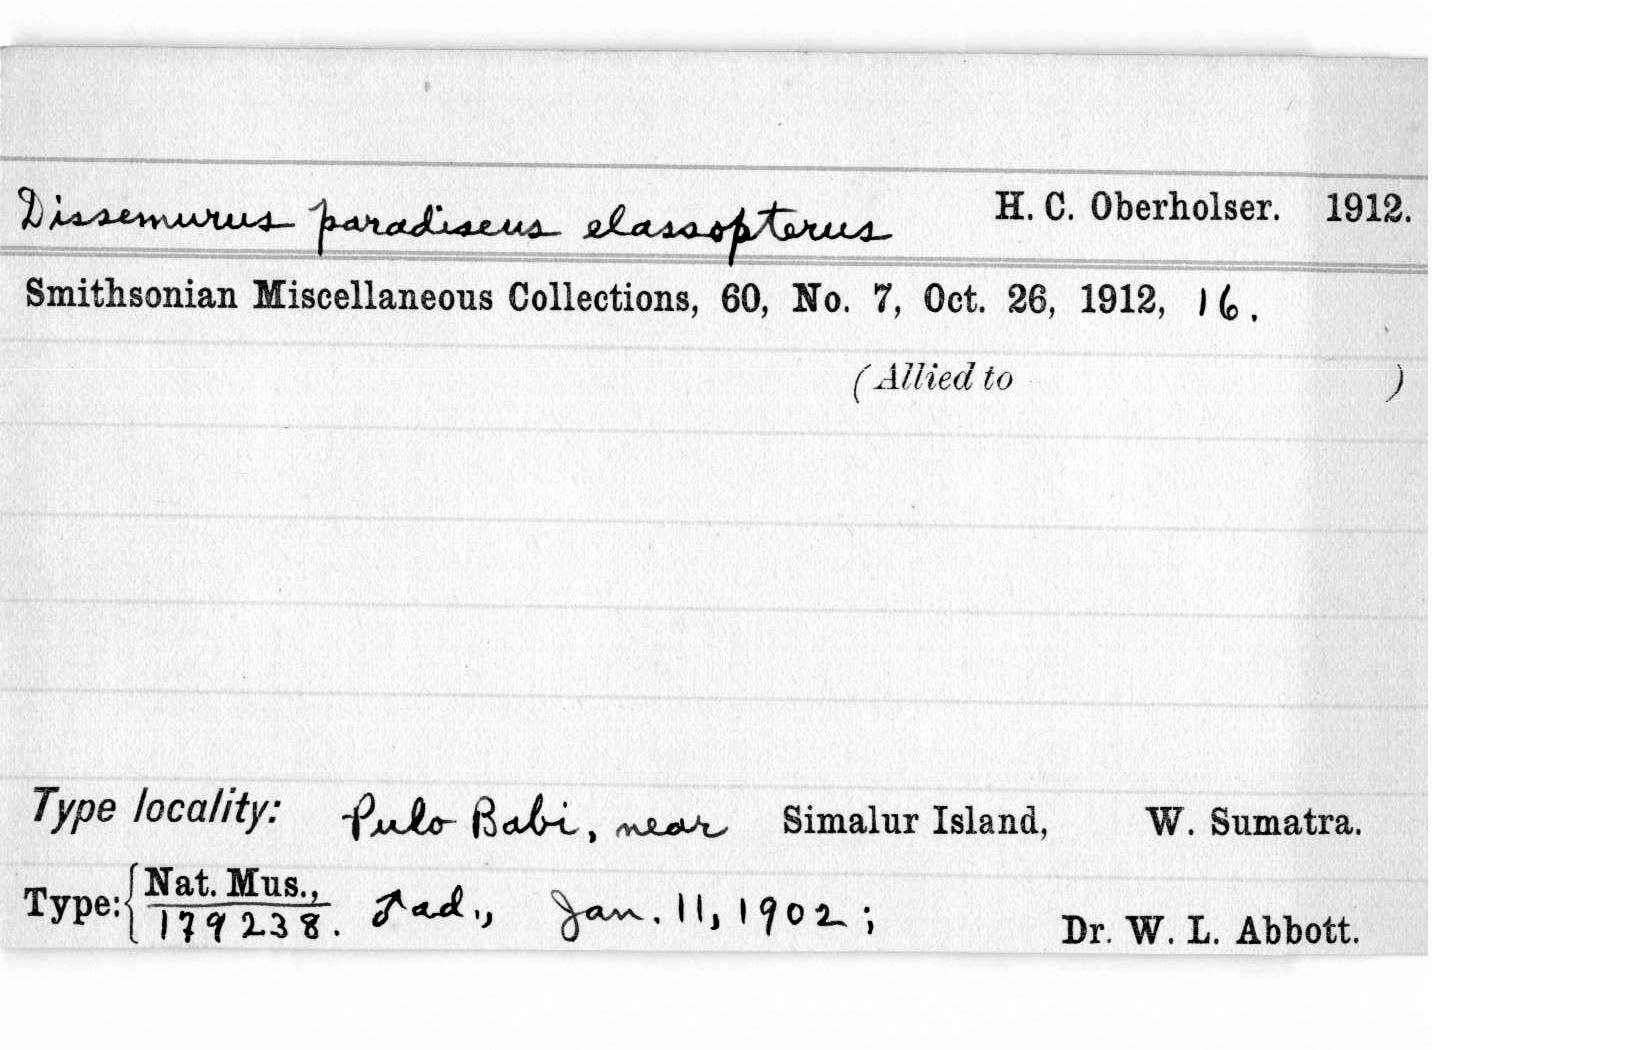 Dissemurus paradiseus elassopterus H. C. Oberholser. 1912.
Smithsonian Miscellaneous Collections, 60, No. 7, Oct. 26, 1912, 16.
(Allied to )
Type locality: Pulo Babi, near Simalur Island, W. Sumatra.
Type: { Nat. Mus.,
179238. ♂ ad., Jan. 11, 1902; Dr. W. L. Abbott.